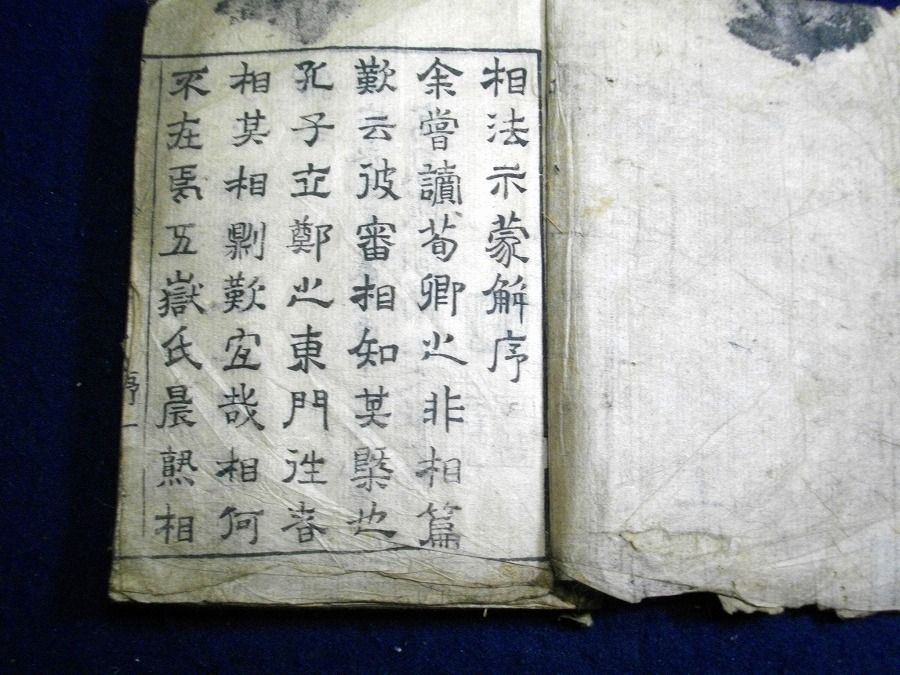 相法示蒙解序
余嘗讀荀卿之非相篇
歎云彼審相知其槩也
孔子立鄭之東門徃者
相其相則歎宜哉相何
不在焉五嶽氏晨熟相
序 一